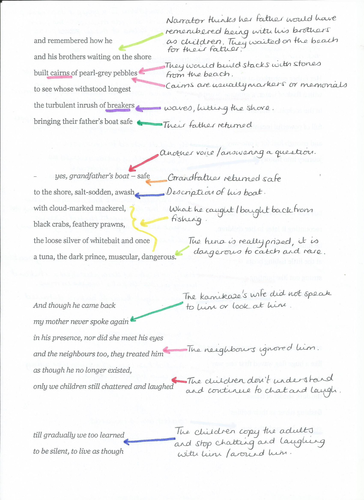 Narrator thinks her father would have
remembered being with his brothers
as children. They waited on the beach
for their father.
and remembered how he
and his brothers waiting on the shore
built cairns of pearl-grey pebbles
They would build stacks with stones
from the beach.
Cairns are usually markers or memorials
to see whose withstood longest
the turbulent inrush of breakers
waves, hitting the shore.
bringing their father's boat safe
Their father returned
another voice/answering a question.
- yes, grandfather's boat – safe
Grandfather returned safe
to the shore, salt-sodden, awash
Description of his boat.
with cloud-marked mackerel,
What he caught/bought back from
fishing.
black crabs, feathery prawns,
the loose silver of whitebait and once
The tuna is really prized, it is
dangerous to catch and rare.
a tuna, the dark prince, muscular, dangerous.
And though he came back
The kamikaze's wife did not speak
to him or look at him.
my mother never spoke again
in his presence, nor did she meet his eyes
and the neighbours too, they treated him
The neighbours ignored him.
as though he no longer existed,
only we children still chattered and laughed
The children don't understand
and continue to chat and laugh.
till gradually we too learned
The children copy the adults
and stop chatting and laughing
with him/around him.
to be silent, to live as though